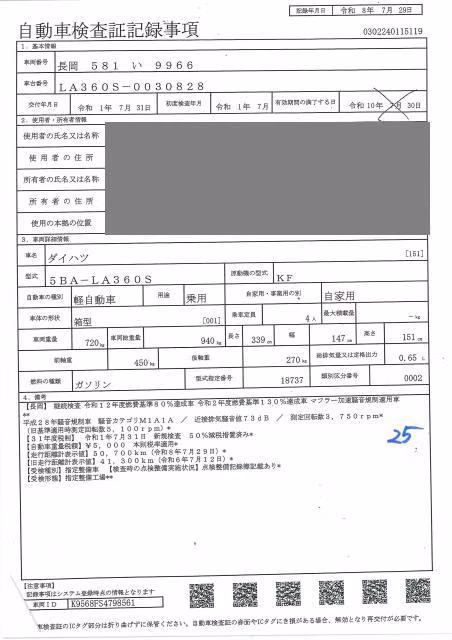 記録年月日 令和 8年 7月 29日
自動車検査証記録事項
0302240115119
1. 基本情報
車両番号 長岡 581 い 9966
車台番号 LA360S-0030828
交付年月日 令和 1年 7月 31日 初度検査年月 令和 1年 7月 有効期間の満了する日 令和 10年 7月 30日
2. 使用者・所有者情報
使用者の氏名又は名称
使用者の住所
所有者の氏名又は名称
所有者の住所
使用の本拠の位置
3. 車両詳細情報
車名 ダイハツ [151]
型式 5BA-LA360S 原動機の型式 KF
自動車の種別 軽自動車 用途 乗用 自家用・事業用の別 自家用
車体の形状 箱型 [001] 乗車定員 4人 最大積載量 -kg
車両重量 720kg 車両総重量 940kg 長さ 339cm 幅 147cm 高さ 151cm
前軸重 450kg 後軸重 270kg 総排気量又は定格出力 0.65 L
燃料の種類 ガソリン 型式指定番号 18737 類別区分番号 0002
4. 備考
[長岡] 継続検査 令和12年度燃費基準80%達成車 令和2年度燃費基準130%達成車 マフラー加速騒音規制適用車
**
平成28年騒音規制車 騒音カテゴリM1A1A / 近接排気騒音値73dB / 測定回転数3,750rpm*
(旧基準適用時測定回転数5,100rpm)*
[31年度税制] 令和1年7月31日 新規検査 50%減税措置済み*
[自動車重量税額] ¥5,000 本則税率適用*
[走行距離計表示値] 50,700km (令和8年7月29日)*
[旧走行距離計表示値] 41,300km (令和6年7月12日)*
[受検種別] 指定整備車 [検査時の点検整備実施状況] 点検整備記録簿記載あり*
[受検形態] 指定整備工場**
25
[注意事項]
記録事項はシステム登録時点の情報となります
車両ID K9568FS4798561
車検査証のICタグ部分は折り曲げずに保管ください。自動車検査証の券面やICタグにき損がある場合、無効となり再交付が必要です。